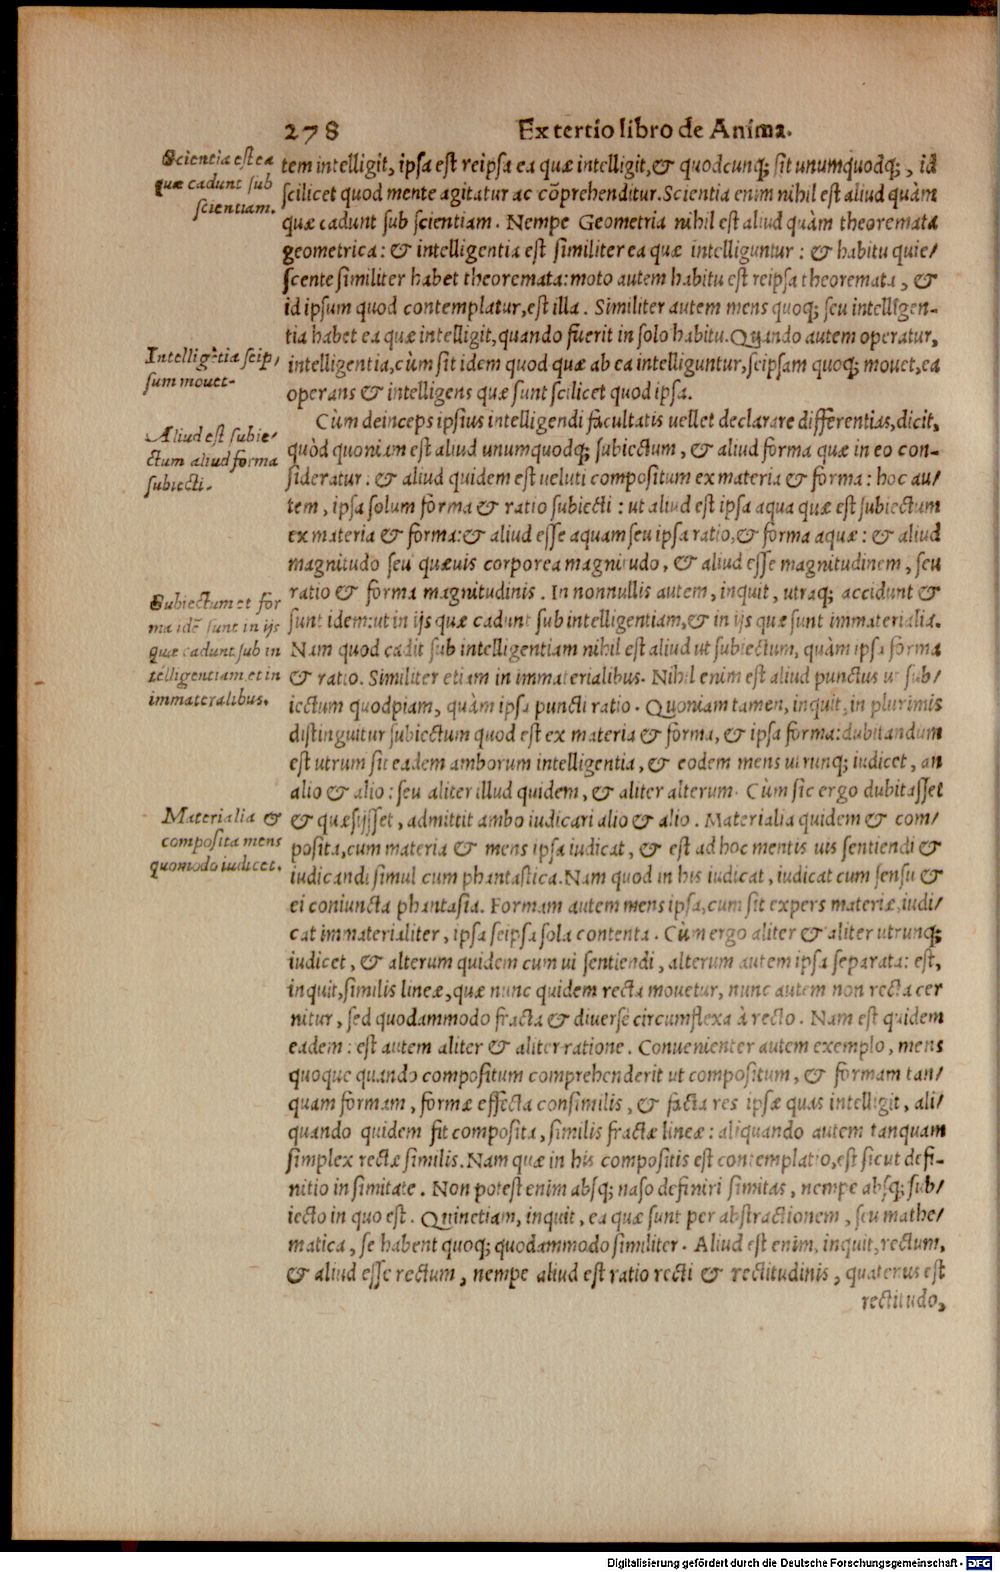 278 Ex tertio libro de Anima.
Scientia est ea
quæ cadunt sub
scientiam.
tem intelligit, ipsa est reipsa ea quæ intelligit, & quodcunq; sit unumquodq;, id
scilicet quod mente agitatur ac cõprehenditur. Scientia enim nihil est aliud quàm
quæ cadunt sub scientiam. Nempe Geometria nihil est aliud quàm theoremata
geometrica: & intelligentia est similiter ea quæ intelliguntur: & habitu quie/
scente similiter habet theoremata: moto autem habitu est reipsa theoremata, &
id ipsum quod contemplatur, est illa. Similiter autem mens quoq; seu intelligen-
tia habet ea quæ intelligit, quando fuerit in solo habitu. Quando autem operatur,
Intelligẽtia seip/
sum mouet.
intelligentia, cùm sit idem quod quæ ab ea intelliguntur, seipsam quoq; mouet, ea
operans & intelligens quæ sunt scilicet quod ipsa.
Cùm deinceps ipsius intelligendi facultatis uellet declarare differentias, dicit,
Aliud est subie/
ctum aliud forma
subiecti.
quòd quoniam est aliud unumquodq; subiectum, & aliud forma quæ in eo con-
sideratur: & aliud quidem est ueluti compositum ex materia & forma: hoc au/
tem, ipsa solum forma & ratio subiecti: ut aliud est ipsa aqua quæ est subiectum
ex materia & forma: & aliud esse aquam seu ipsa ratio, & forma aquæ: & aliud
magnitudo seu quæuis corporea magnitudo, & aliud esse magnitudinem, seu
Subiectum et for
ma idẽ sunt in ijs
quæ cadunt sub in
telligentiam, et in
immateralibus.
ratio & forma magnitudinis. In nonnullis autem, inquit, utraq; accidunt &
sunt idem: ut in ijs quæ cadunt sub intelligentiam, & in ijs quæ sunt immaterialia.
Nam quod cadit sub intelligentiam nihil est aliud ut subiectum, quàm ipsa forma
& ratio. Similiter etiam in immaterialibus. Nihil enim est aliud punctus ut sub/
iectum quodpiam, quàm ipsa puncti ratio. Quoniam tamen, inquit, in plurimis
distinguitur subiectum quod est ex materia & forma, & ipsa forma: dubitandum
est utrum sit eadem amborum intelligentia, & eodem mens utrunq; iudicet, an
alio & alio: seu aliter illud quidem, & aliter alterum. Cùm sic ergo dubitasset
Materialia &
composita mens
quomodo iudicet.
& quæsijsset, admittit ambo iudicari alio & alio. Materialia quidem & com/
posita, cum materia & mens ipsa iudicat, & est ad hoc mentis uis sentiendi &
iudicandi simul cum phantastica. Nam quod in his iudicat, iudicat cum sensu &
ei coniuncta phantasia. Formam autem mens ipsa, cum sit expers materiæ, iudi/
cat immaterialiter, ipsa seipsa sola contenta. Cùm ergo aliter & aliter utrunq;
iudicet, & alterum quidem cum ui sentiendi, alterum autem ipsa separata: est,
inquit, similis lineæ, quæ nunc quidem recta mouetur, nunc autem non recta cer
nitur, sed quodammodo fracta & diuersè circumflexa à recto. Nam est quidem
eadem: est autem aliter & aliter ratione. Conuenienter autem exemplo, mens
quoque quando compositum comprehenderit ut compositum, & formam tan/
quam formam, formæ effecta consimilis, & facta res ipsæ quas intelligit, ali/
quando quidem fit composita, similis fractæ lineæ: aliquando autem tanquam
simplex rectæ similis. Nam quæ in his compositis est contemplatio, est sicut defi-
nitio in simitate. Non potest enim absq; naso definiri simitas, nempe absq; sub/
iecto in quo est. Quinetiam, inquit, ea quæ sunt per abstractionem, seu mathe/
matica, se habent quoq; quodammodo similiter. Aliud est enim, inquit, rectum,
& aliud esse rectum, nempe aliud est ratio recti & rectitudinis, quatenus est
rectitudo,
Digitalisierung gefördert durch die Deutsche Forschungsgemeinschaft - DFG